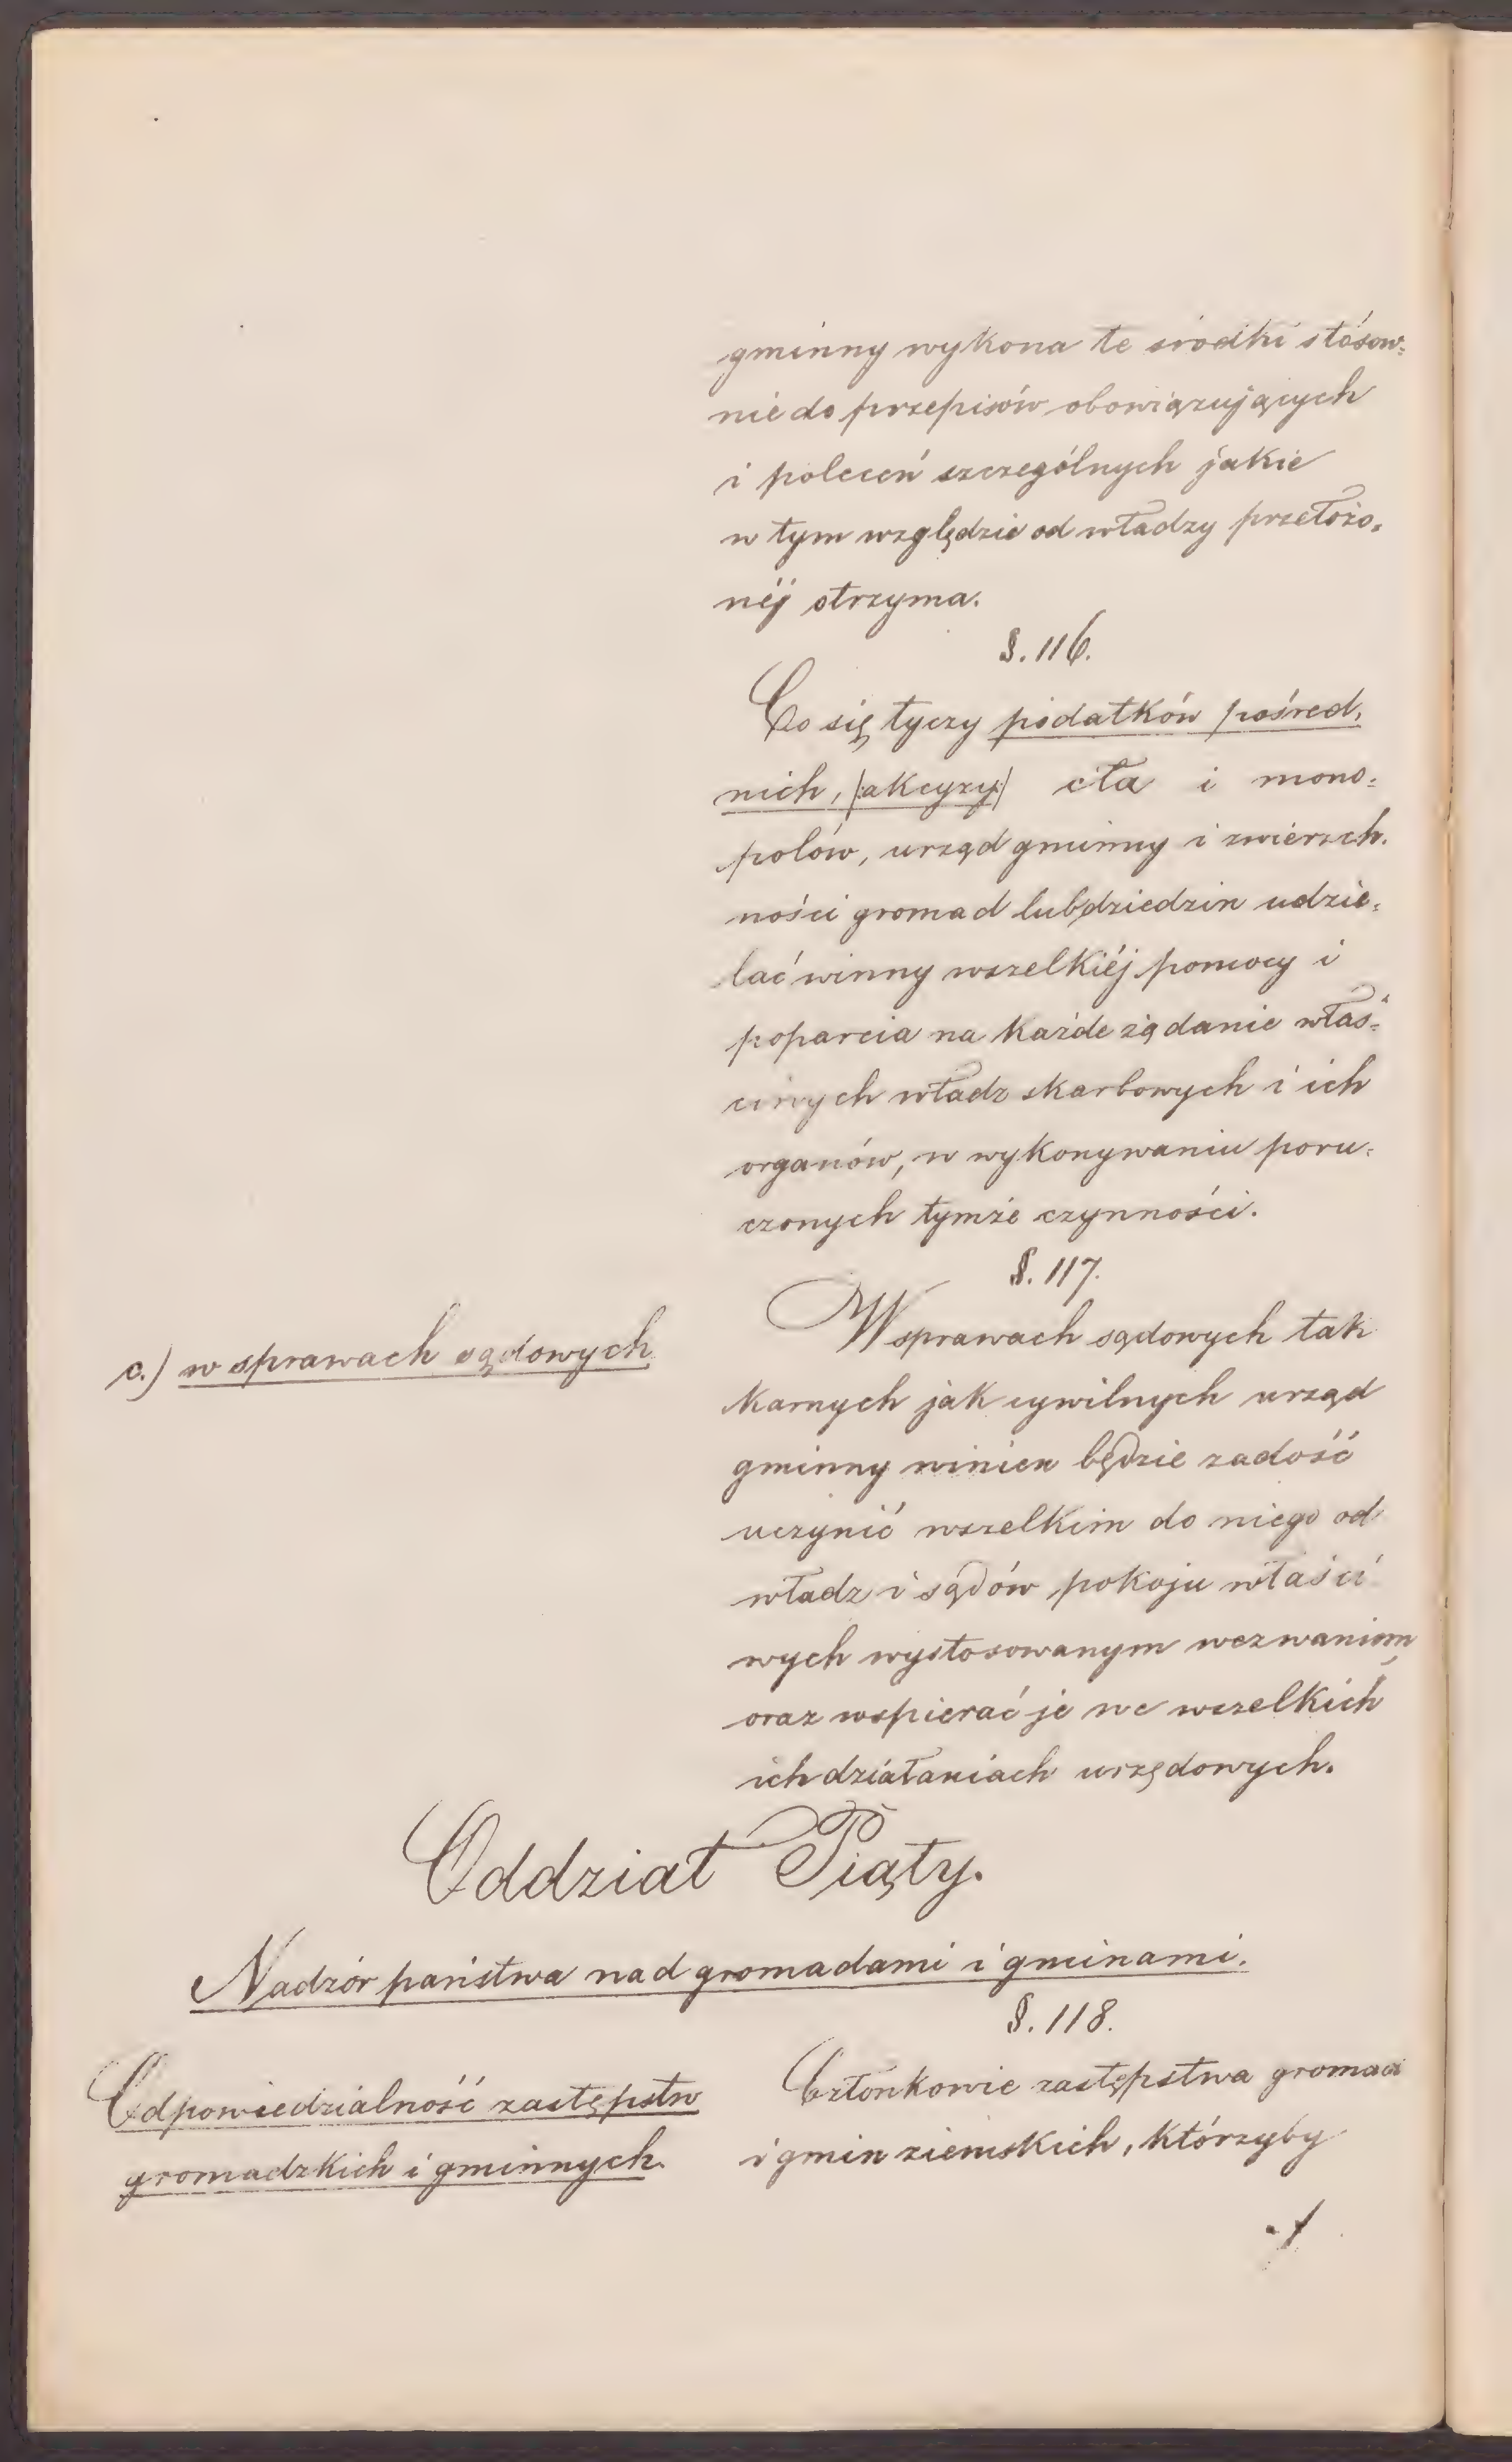 gminny wykona te środki stósow=
nie do przepisów obowiązujących
i poleceń szczególnych jakie
w tym względzie od władzy przełożo=
néj otrzyma.
§. 116.
Co się tyczy podatków pośred=
nich, /:akcyzy:/ cła i mono=
polów, urząd gminny i zwierzch=
ności gromad lub dziedzin udzie=
lać winny wszelkiéj pomocy i
poparcia na każde żądanie właś=
ciwych władz skarbowych i ich
organów, w wykonywaniu poru=
czonych tymże czynności.
§. 117.
c.) w sprawach sądowych
W sprawach sądowych tak
karnych jak cywilnych urząd
gminny winien będzie zadość
uczynić wszelkim do niego od
władz i sądów pokoju właści
wych wystosowanym wezwaniom,
oraz wspierać je we wszelkich
ich działaniach urzędowych.
Oddział Piąty.
Nadzór państwa nad gromadami i gminami.
§. 118.
Odpowiedzialność zastępstw
gromadzkich i gminnych.
Członkowie zastępstwa gromad
i gmin ziemskich, którzyby